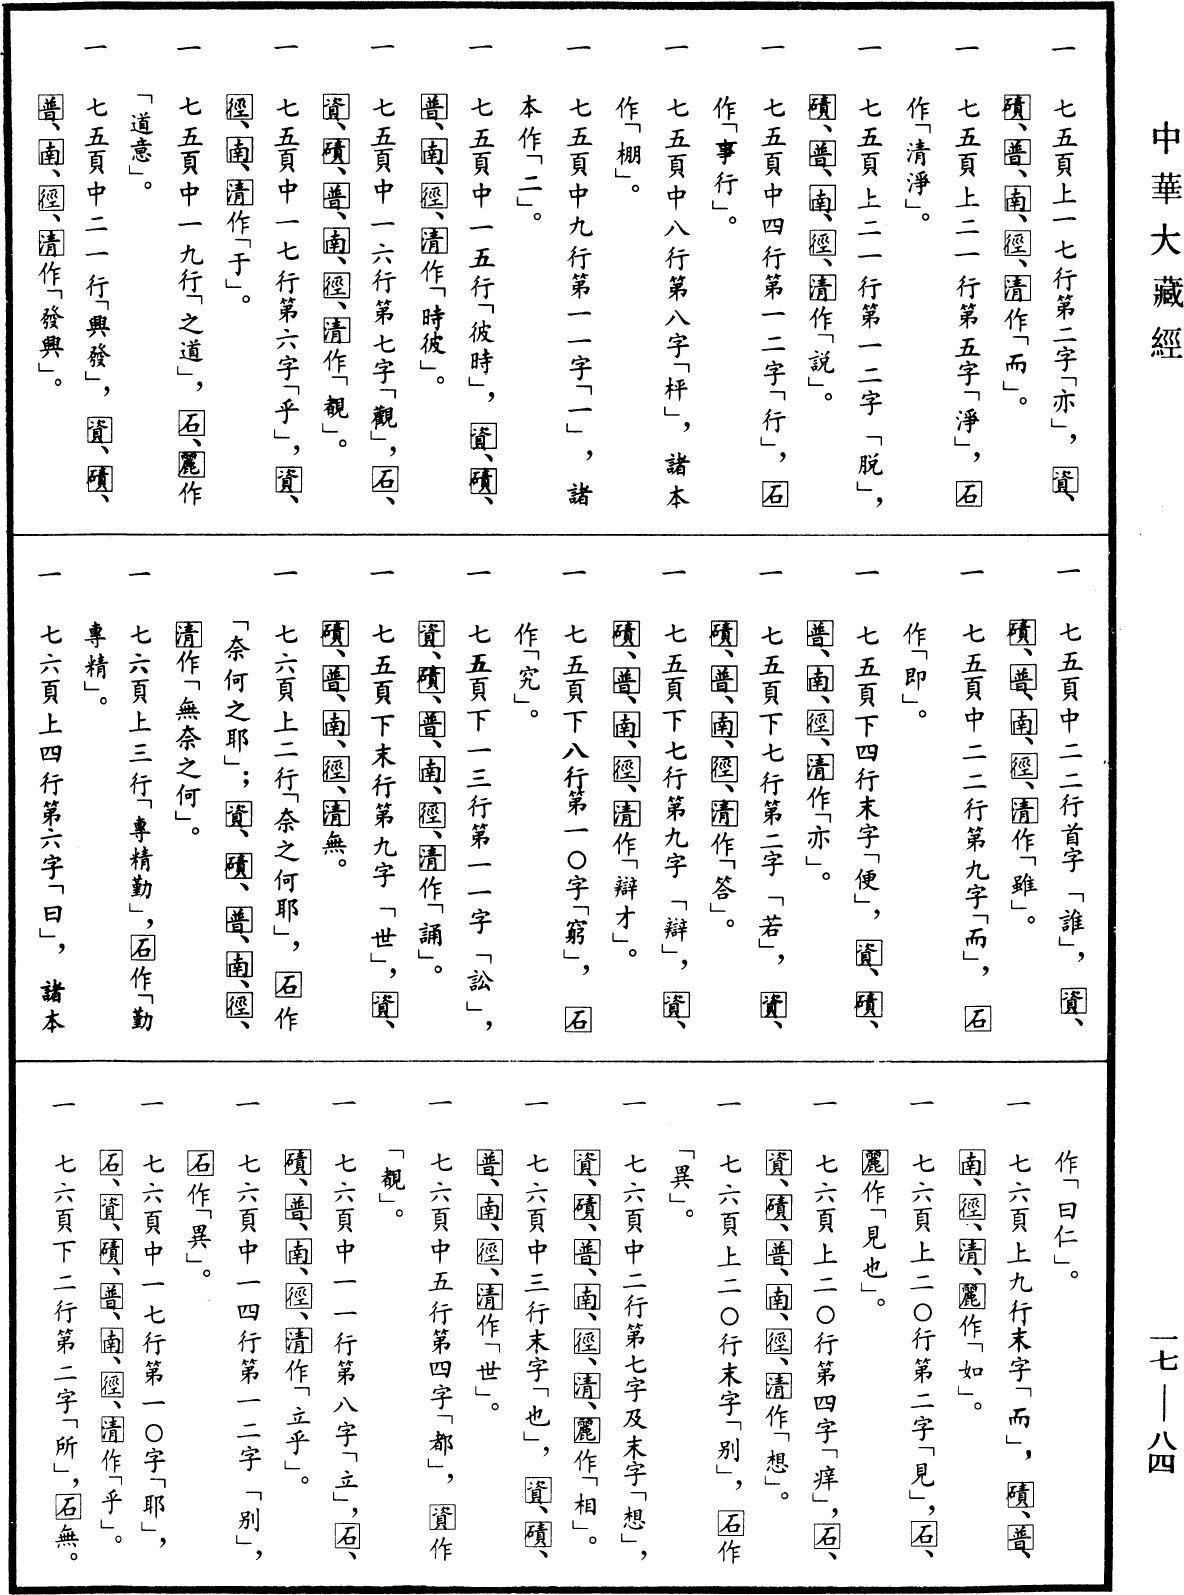 中華大藏經
一七—八四
一　七五頁上一七行第二字「亦」，資、
磧、普、南、徑、清作「而」。
一　七五頁上二一行第五字「淨」，石
作「清淨」。
一　七五頁上二一行第一二字「脱」，
磧、普、南、徑、清作「説」。
一　七五頁中四行第一二字「行」，石
作「事行」。
一　七五頁中八行第八字「枰」，諸本
作「棚」。
一　七五頁中九行第一一字「一」，諸
本作「二」。
一　七五頁中一五行「彼時」，資、磧、
普、南、徑、清作「時彼」。
一　七五頁中一六行第七字「觀」，石、
資、磧、普、南、徑、清作「覩」。
一　七五頁中一七行第六字「乎」，資、
徑、南、清作「于」。
一　七五頁中一九行「之道」，石、麗作
「道意」。
一　七五頁中二一行「興發」，資、磧、
普、南、徑、清作「發興」。
一　七五頁中二二行首字「誰」，資、
磧、普、南、徑、清作「雖」。
一　七五頁中二二行第九字「而」，石
作「即」。
一　七五頁下四行末字「便」，資、磧、
普、南、徑、清作「亦」。
一　七五頁下七行第二字「若」，資、
磧、普、南、徑、清作「答」。
一　七五頁下七行第九字「辯」，資、
磧、普、南、徑、清作「辯才」。
一　七五頁下八行第一〇字「窮」，石
作「究」。
一　七五頁下一三行第一一字「訟」，
資、磧、普、南、徑、清作「誦」。
一　七五頁下末行第九字「世」，資、
磧、普、南、徑、清無。
一　七六頁上二行「奈之何耶」，石作
「奈何之耶」；資、磧、普、南、徑、
清作「無奈之何」。
一　七六頁上三行「專精勤」，石作「勤
專精」。
一　七六頁上四行第六字「曰」，諸本
作「曰仁」。
一　七六頁上九行末字「而」，磧、普、
南、徑、清、麗作「如」。
一　七六頁上二〇行第二字「見」，石、
麗作「見也」。
一　七六頁上二〇行第四字「痒」，石、
資、磧、普、南、徑、清作「想」。
一　七六頁上二〇行末字「别」，石作
「異」。
一　七六頁中二行第七字及末字「想」，
資、磧、普、南、徑、清、麗作「相」。
一　七六頁中三行末字「也」，資、磧、
普、南、徑、清作「世」。
一　七六頁中五行第四字「都」，資作
「覩」。
一　七六頁中一一行第八字「立」，石、
磧、普、南、徑、清作「立乎」。
一　七六頁中一四行第一二字「别」，
石作「異」。
一　七六頁中一七行第一〇字「耶」，
石、資、磧、普、南、徑、清作「乎」。
一　七六頁下二行第二字「所」，石無。